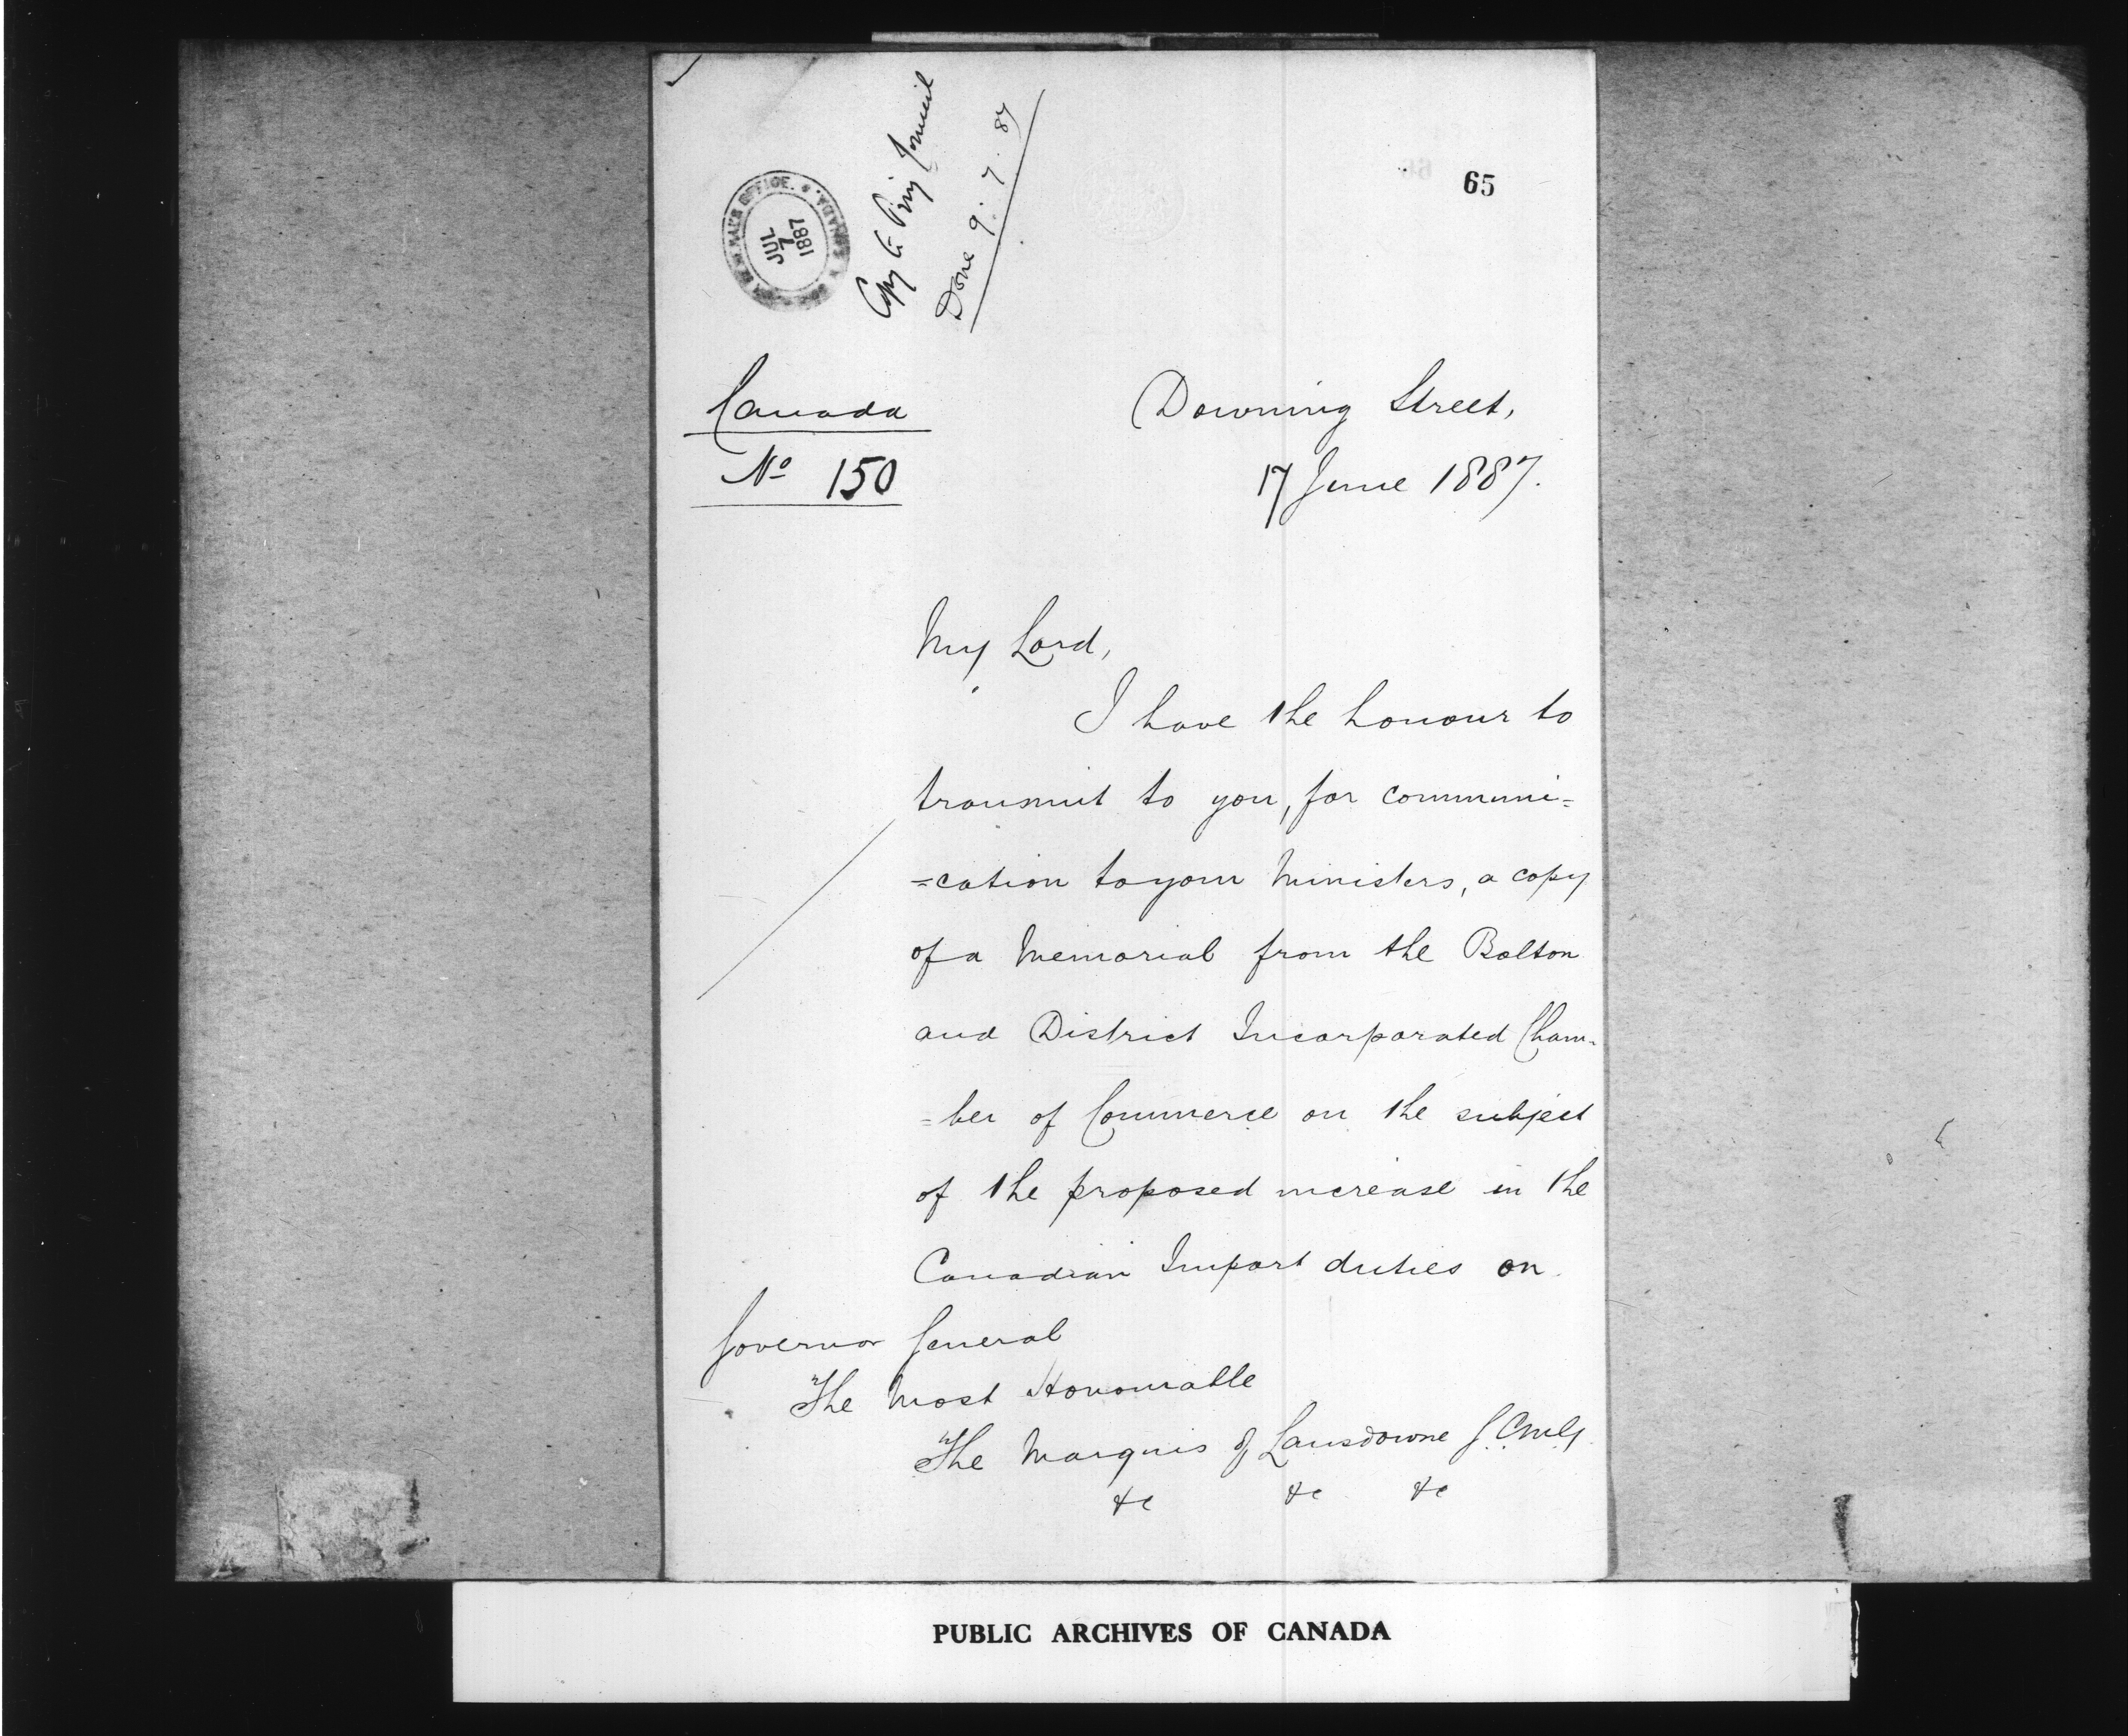 65
JUL
7
1887
CANADA
Copy to Privy Council
Done 9.7.87
Canada
No 150
Downing Street,
17 June 1887.
My Lord,
I have the honour to
transmit to you, for communi=
=cation to your Ministers, a copy
of a Memorial from the Bolton
and District Incorporated Cham=
=ber of Commerce on the subject
of the proposed increase in the
Canadian Import duties on
Governor General
The Most Honourable
The Marquis of Lansdowne G.C.M.G.
&c &c &c
PUBLIC ARCHIVES OF CANADA